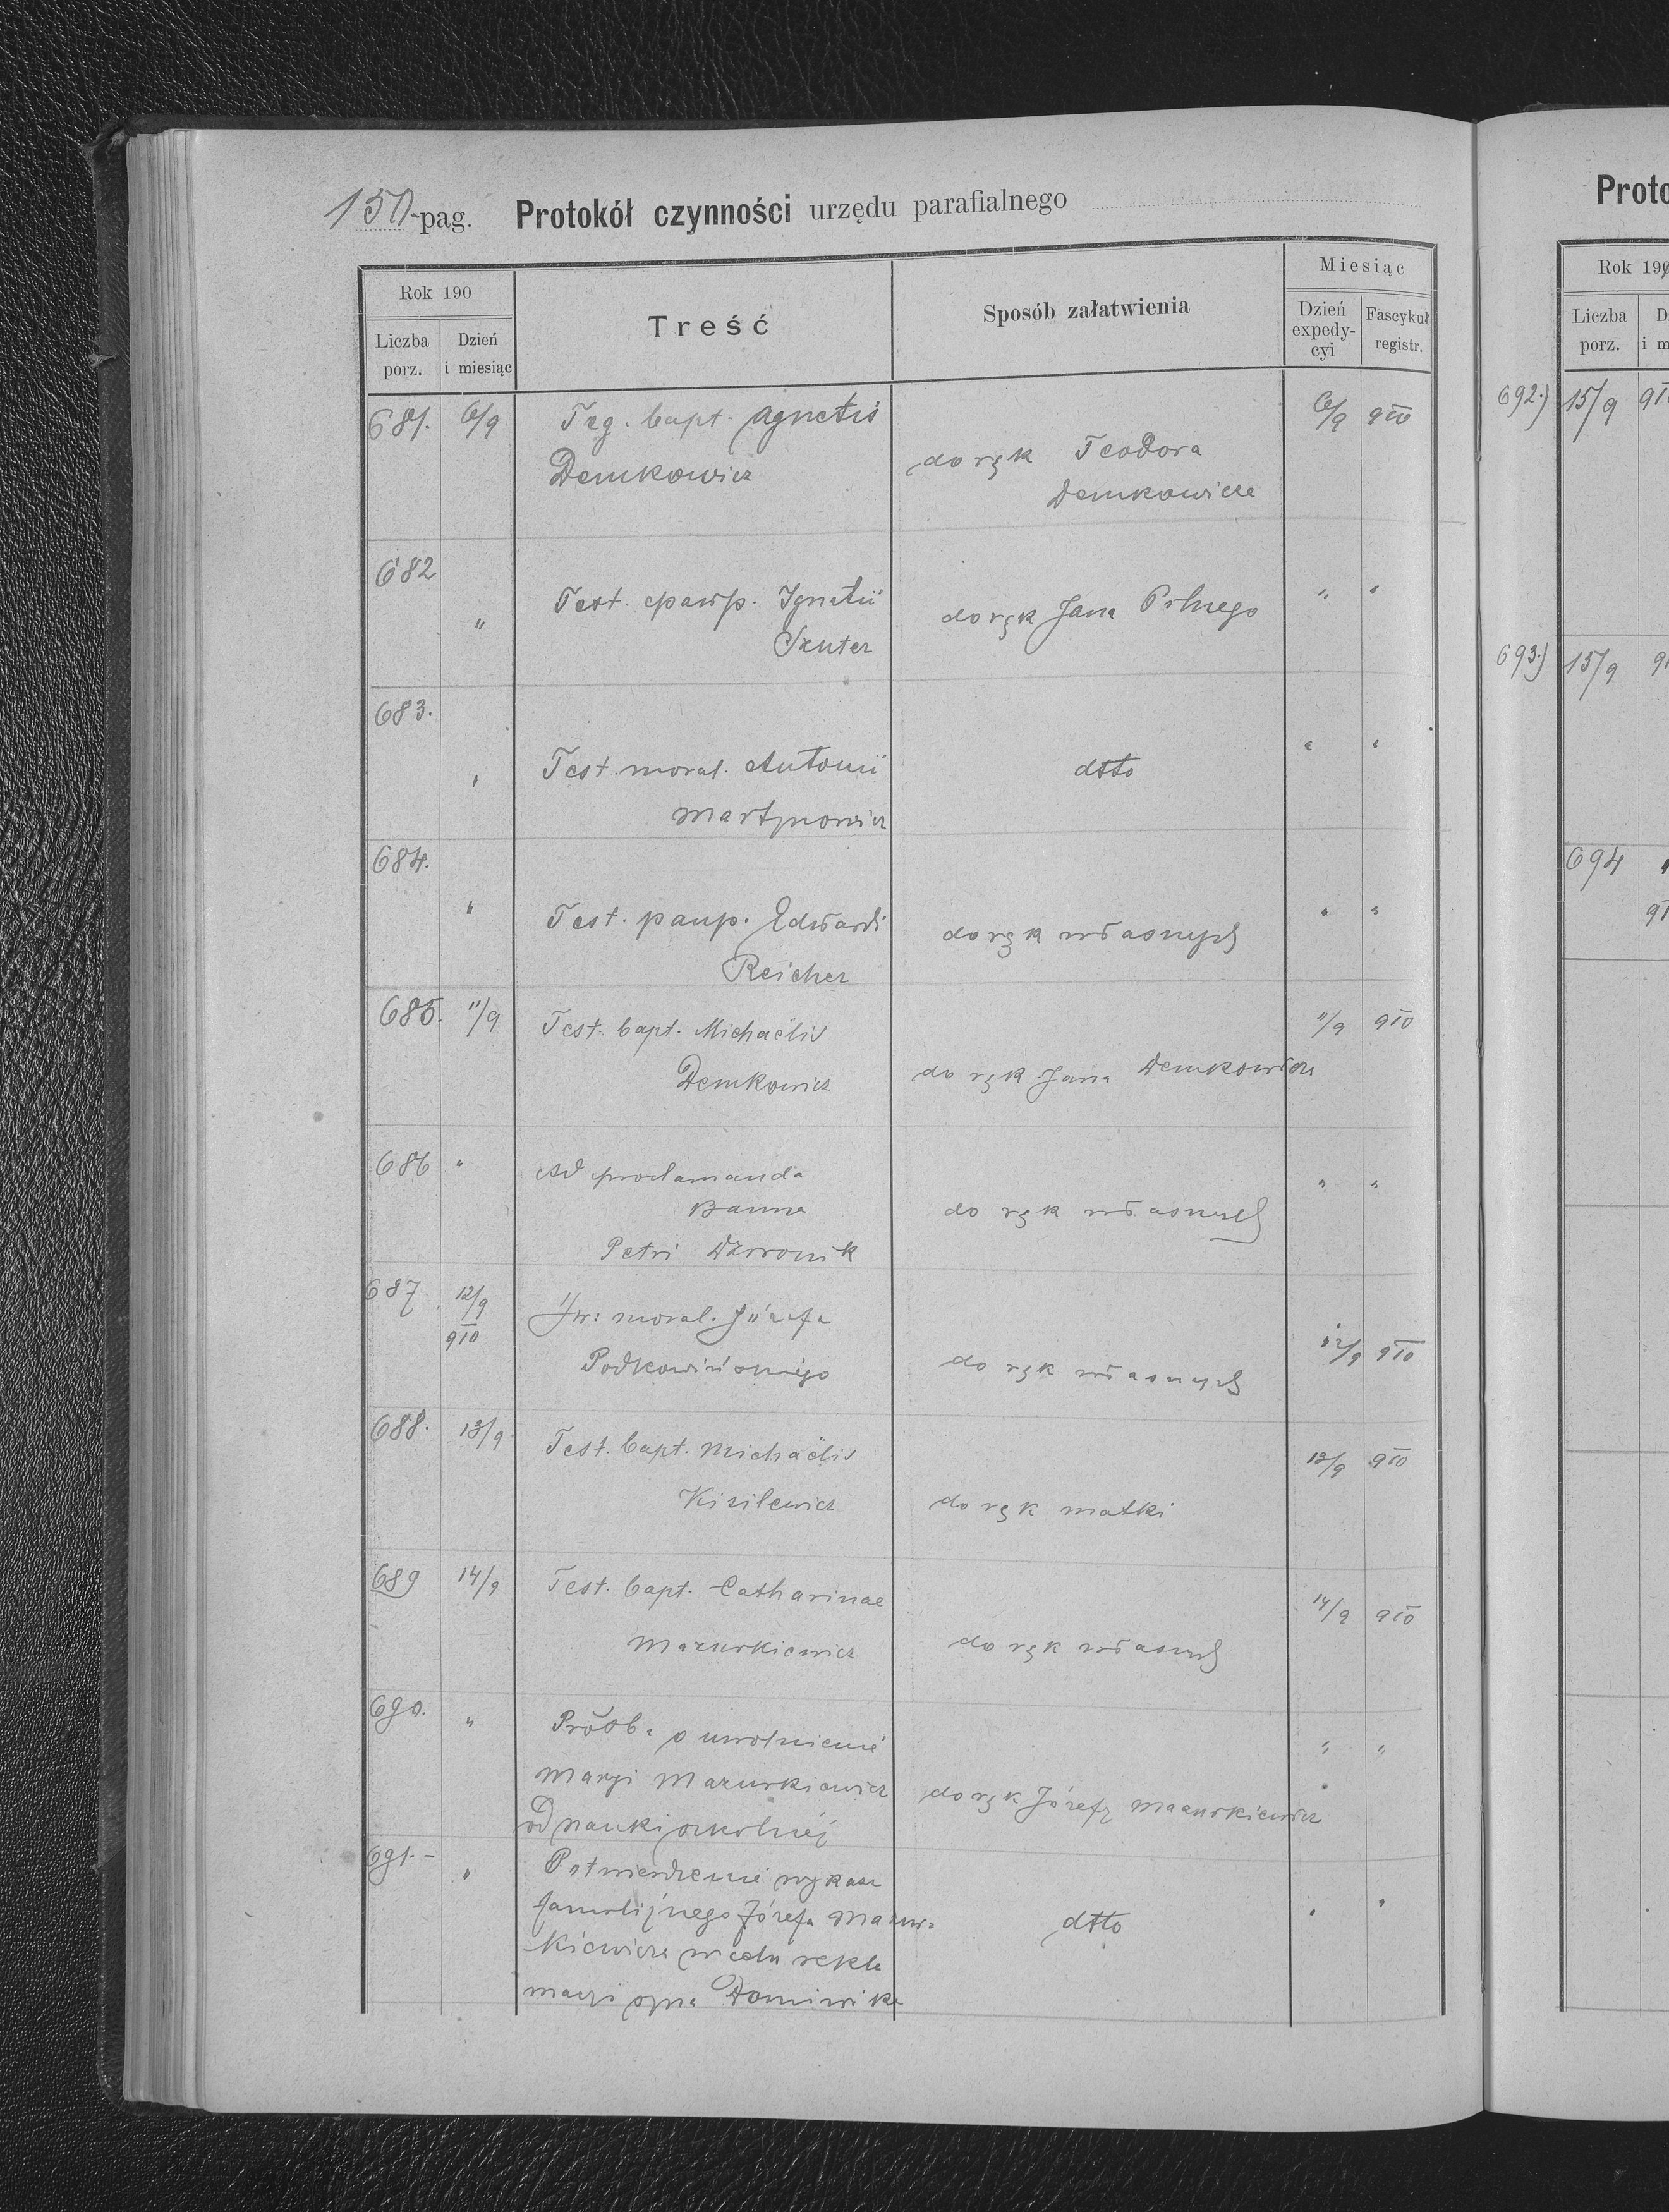 150 pag. Protokół czynności urzędu parafialnego
Rok 190
Treść
Sposób załatwienia
Miesiąc
Liczba porz.
Dzień i miesiąc
Dzień expedy-cyi
Fascykuł registr.
681. 6/9 Teg. bapt. Agnetis 6/9 910
Demkowicz do rąk Teodora
Demkowicza
682
" Test. paup. Ignatii do rąk Jana " "
Szuter
683.
" Test. moral. Antonii dtto " "
Martynowicz
684.
" Test. paup. Edwardi do rąk własnych " "
Reicher
685. 11/9 Test. bapt. Michaëlis 11/9 910
Demkowicz do rąk Jana Demkowicza
686 " Ad proclamanda " "
Banna do rąk własnych
Petri Dzwonik
687 12/9 910 Św: moral. Józefa 12/9 910
do rąk własnych
688. 13/9 Test. bapt. Michaëlis 13/9 910
Kisilewicz do rąk matki
689 14/9 Test. bapt. Catharinae 14/9 910
Mazurkiewicz do rąk własnych
690. " Prośba o uwolnienie " "
Maryi Mazurkiewicz do rąk Józefy Mazurkiewicz
od nauki szkolnej
691. - " Potwierdzenie wykazu " "
familijnego Józefa Mazur= dtto
kiewicza w celu rekla
macyi syna Dominika
Proto
Rok 190
Liczba porz.
D
i m
692.) 15/9 910
693.) 15/9 91
694 "
91